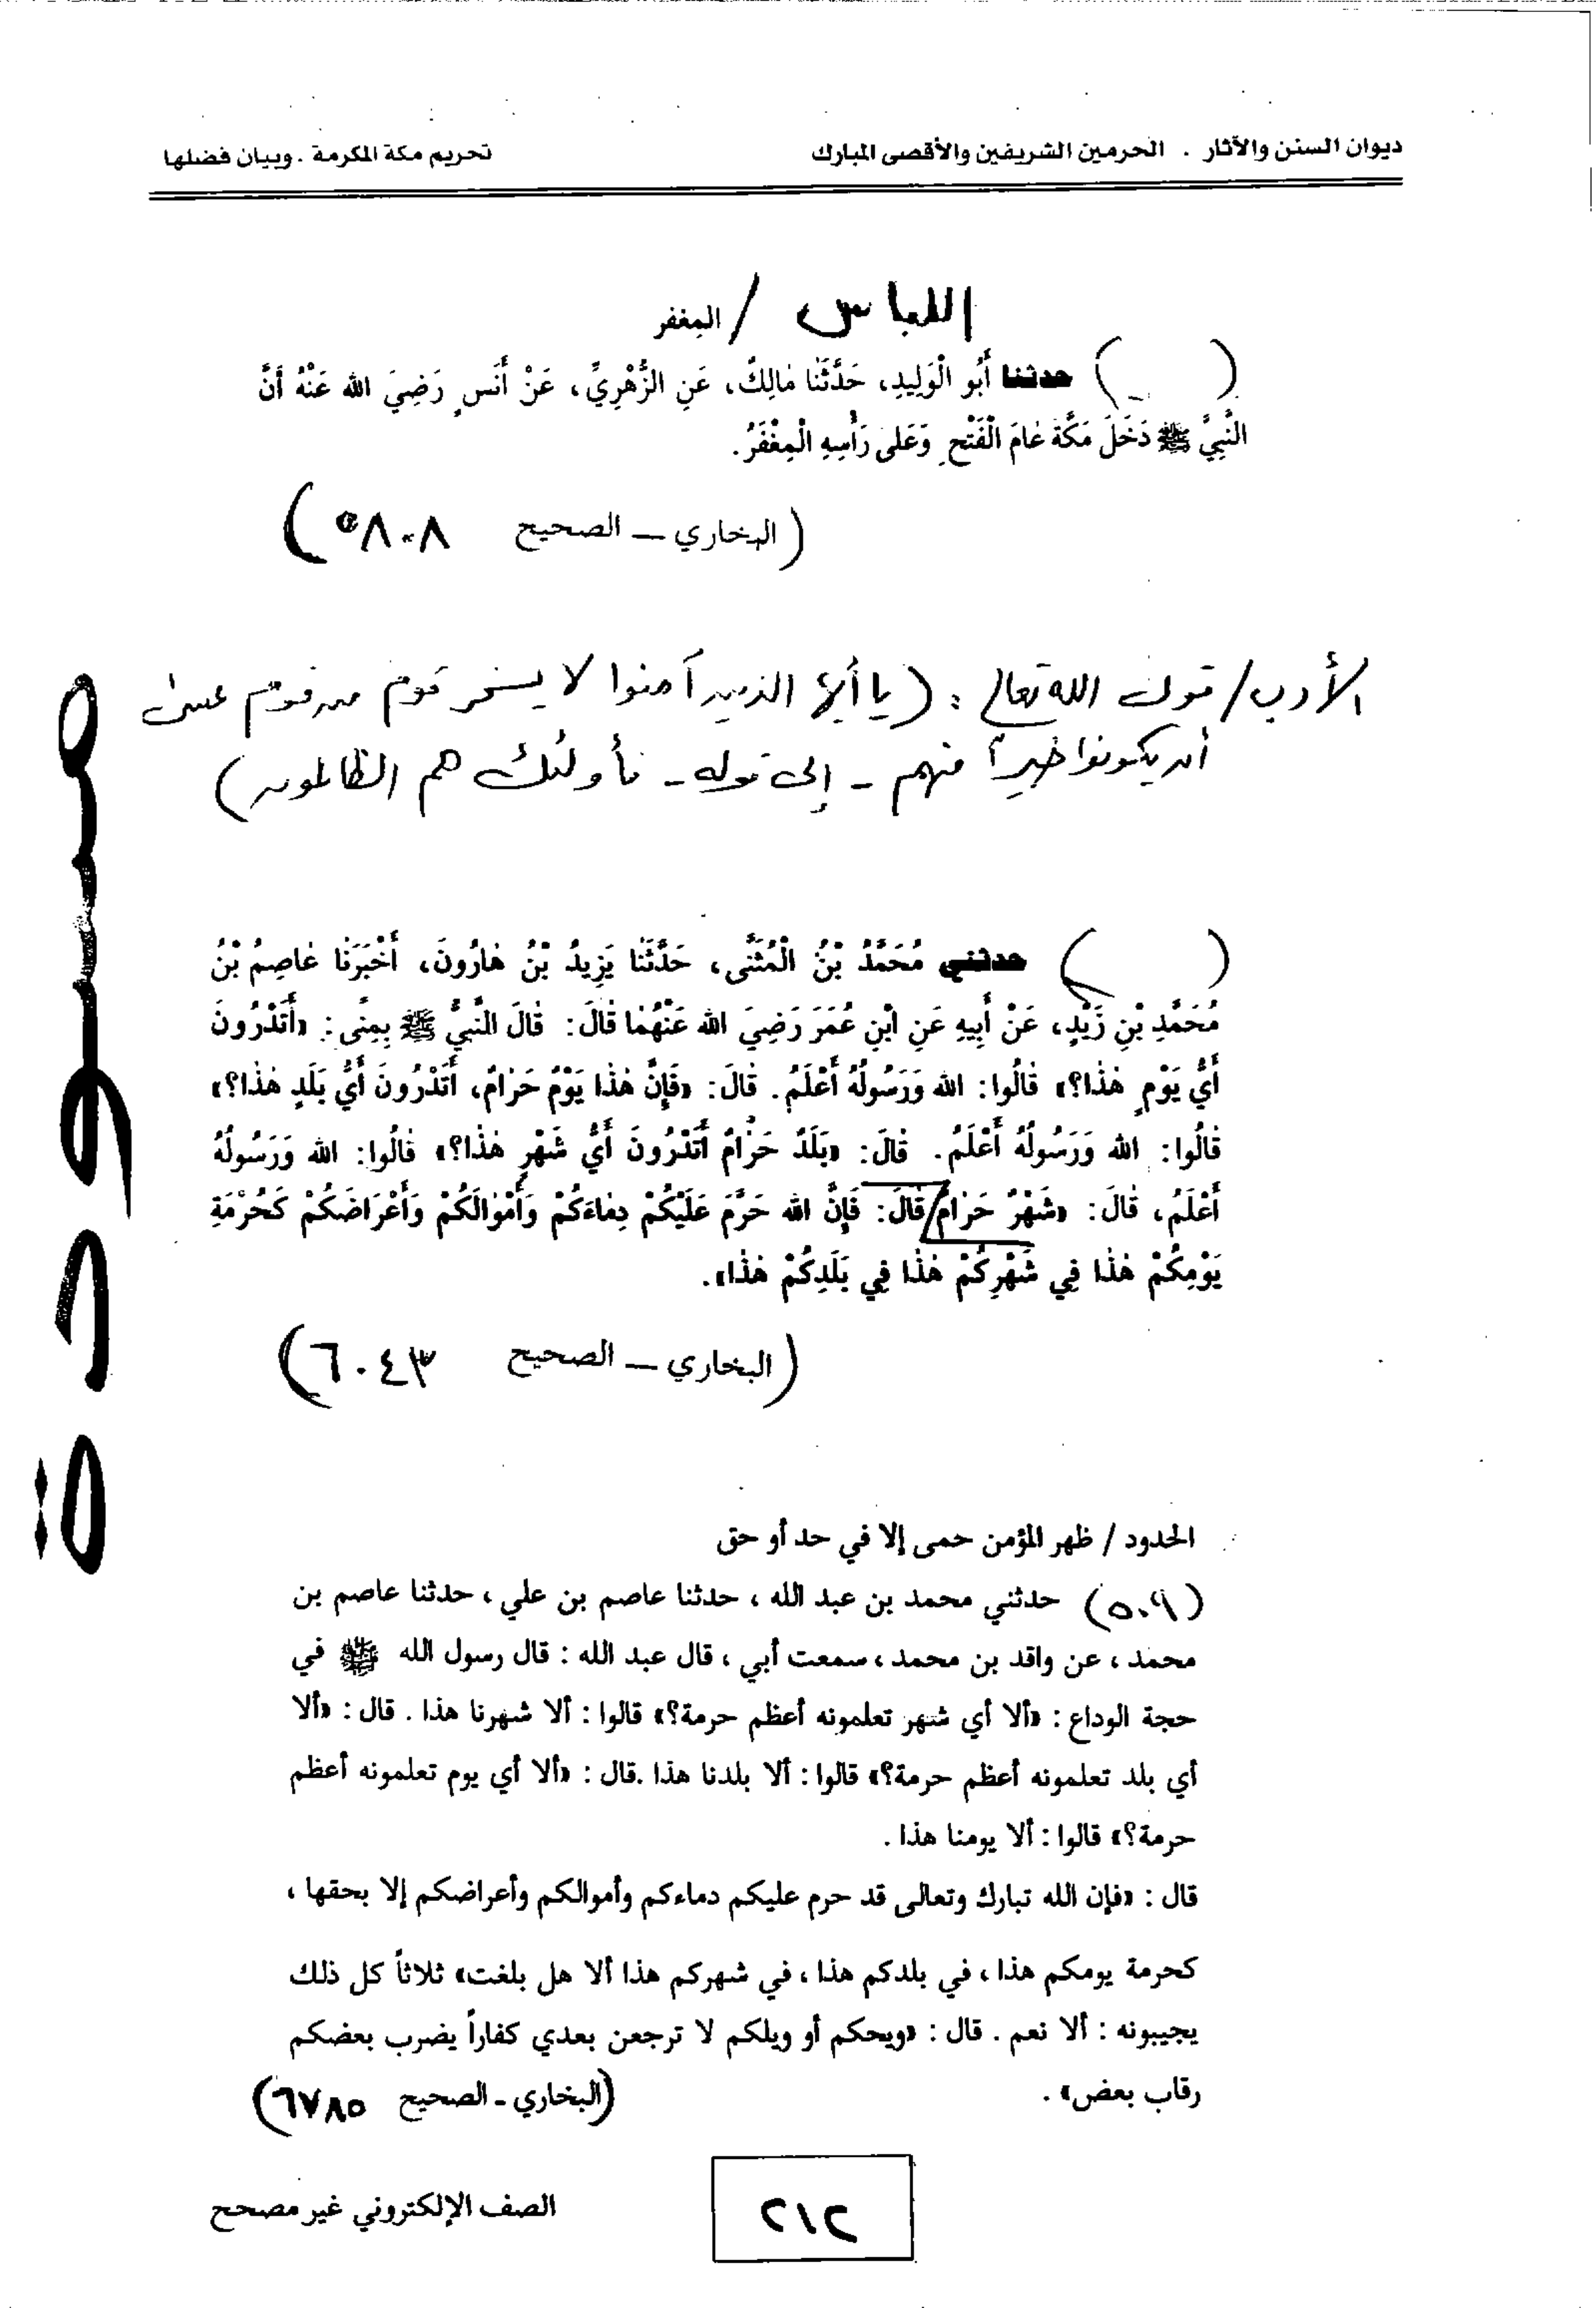 ديوان السنن والآثار . الحرمين الشريفين والأقصى المبارك
تحريم مكة المكرمة . وبيان فضلها
اللباس / المغفر
( ) حدثنا أَبُو الْوَلِيدِ، حَدَّثَنَا مَالِكٌ، عَنِ الزُّهْرِيِّ، عَنْ أَنَسٍ رَضِيَ الله عَنْهُ أَنَّ
النَّبِيَّ ﷺ دَخَلَ مَكَّةَ عَامَ الْفَتْحِ وَعَلى رَأْسِهِ الْمِغْفَرُ.
(البخاري – الصحيح ٥٨٠٨)
الأدب / قول الله تعالى : (يا أيها الذين آمنوا لا يسخر قوم من قوم عسى
أن يكونوا خيراً منهم - إلى قوله - فأولئك هم الظالمون)
( ) حدثني مُحَمَّدُ بْنُ الْمُثَنَّى، حَدَّثَنَا يَزِيدُ بْنُ هَارُونَ، أَخْبَرَنَا عَاصِمُ بْنُ
مُحَمَّدِ بْنِ زَيْدٍ، عَنْ أَبِيهِ عَنِ ابْنِ عُمَرَ رَضِيَ الله عَنْهُمَا قَالَ: قَالَ النَّبِيُّ ﷺ بِمِنًى: «أَتَدْرُونَ
أَيُّ يَوْمٍ هٰذَا؟» قَالُوا: الله وَرَسُولُهُ أَعْلَمُ. قَالَ: «فَإِنَّ هٰذَا يَوْمٌ حَرَامٌ، أَتَدْرُونَ أَيُّ بَلَدٍ هٰذَا؟»
قَالُوا: الله وَرَسُولُهُ أَعْلَمُ. قَالَ: «بَلَدٌ حَرَامٌ أَتَدْرُونَ أَيُّ شَهْرٍ هٰذَا؟» قَالُوا: الله وَرَسُولُهُ
أَعْلَمُ، قَالَ: «شَهْرٌ حَرَامٌ/ قَالَ: فَإِنَّ الله حَرَّمَ عَلَيْكُمْ دِمَاءَكُمْ وَأَمْوَالَكُمْ وَأَعْرَاضَكُمْ كَحُرْمَةِ
يَوْمِكُمْ هٰذَا فِي شَهْرِكُمْ هٰذَا فِي بَلَدِكُمْ هٰذَا».
(البخاري – الصحيح ٦٠٤٣)
الحدود / ظهر المؤمن حمى إلا في حد أو حق
(٥٠٩) حدثني محمد بن عبد الله ، حدثنا عاصم بن علي ، حدثنا عاصم بن
محمد ، عن واقد بن محمد ، سمعت أبي ، قال عبد الله : قال رسول الله ﷺ في
حجة الوداع : «ألا أي شهر تعلمونه أعظم حرمة؟» قالوا : ألا شهرنا هذا . قال : «ألا
أي بلد تعلمونه أعظم حرمة؟» قالوا : ألا بلدنا هذا .قال : «ألا أي يوم تعلمونه أعظم
حرمة؟» قالوا : ألا يومنا هذا .
قال : «فإن الله تبارك وتعالى قد حرم عليكم دماءكم وأموالكم وأعراضكم إلا بحقها ،
كحرمة يومكم هذا ، في بلدكم هذا ، في شهركم هذا ألا هل بلغت» ثلاثاً كل ذلك
يجيبونه : ألا نعم . قال : «ويحكم أو ويلكم لا ترجعن بعدي كفاراً يضرب بعضكم
رقاب بعض» . (البخاري - الصحيح ٦٧٨٥)
٢١٢
الصف الإلكتروني غير مصحح
مسودة